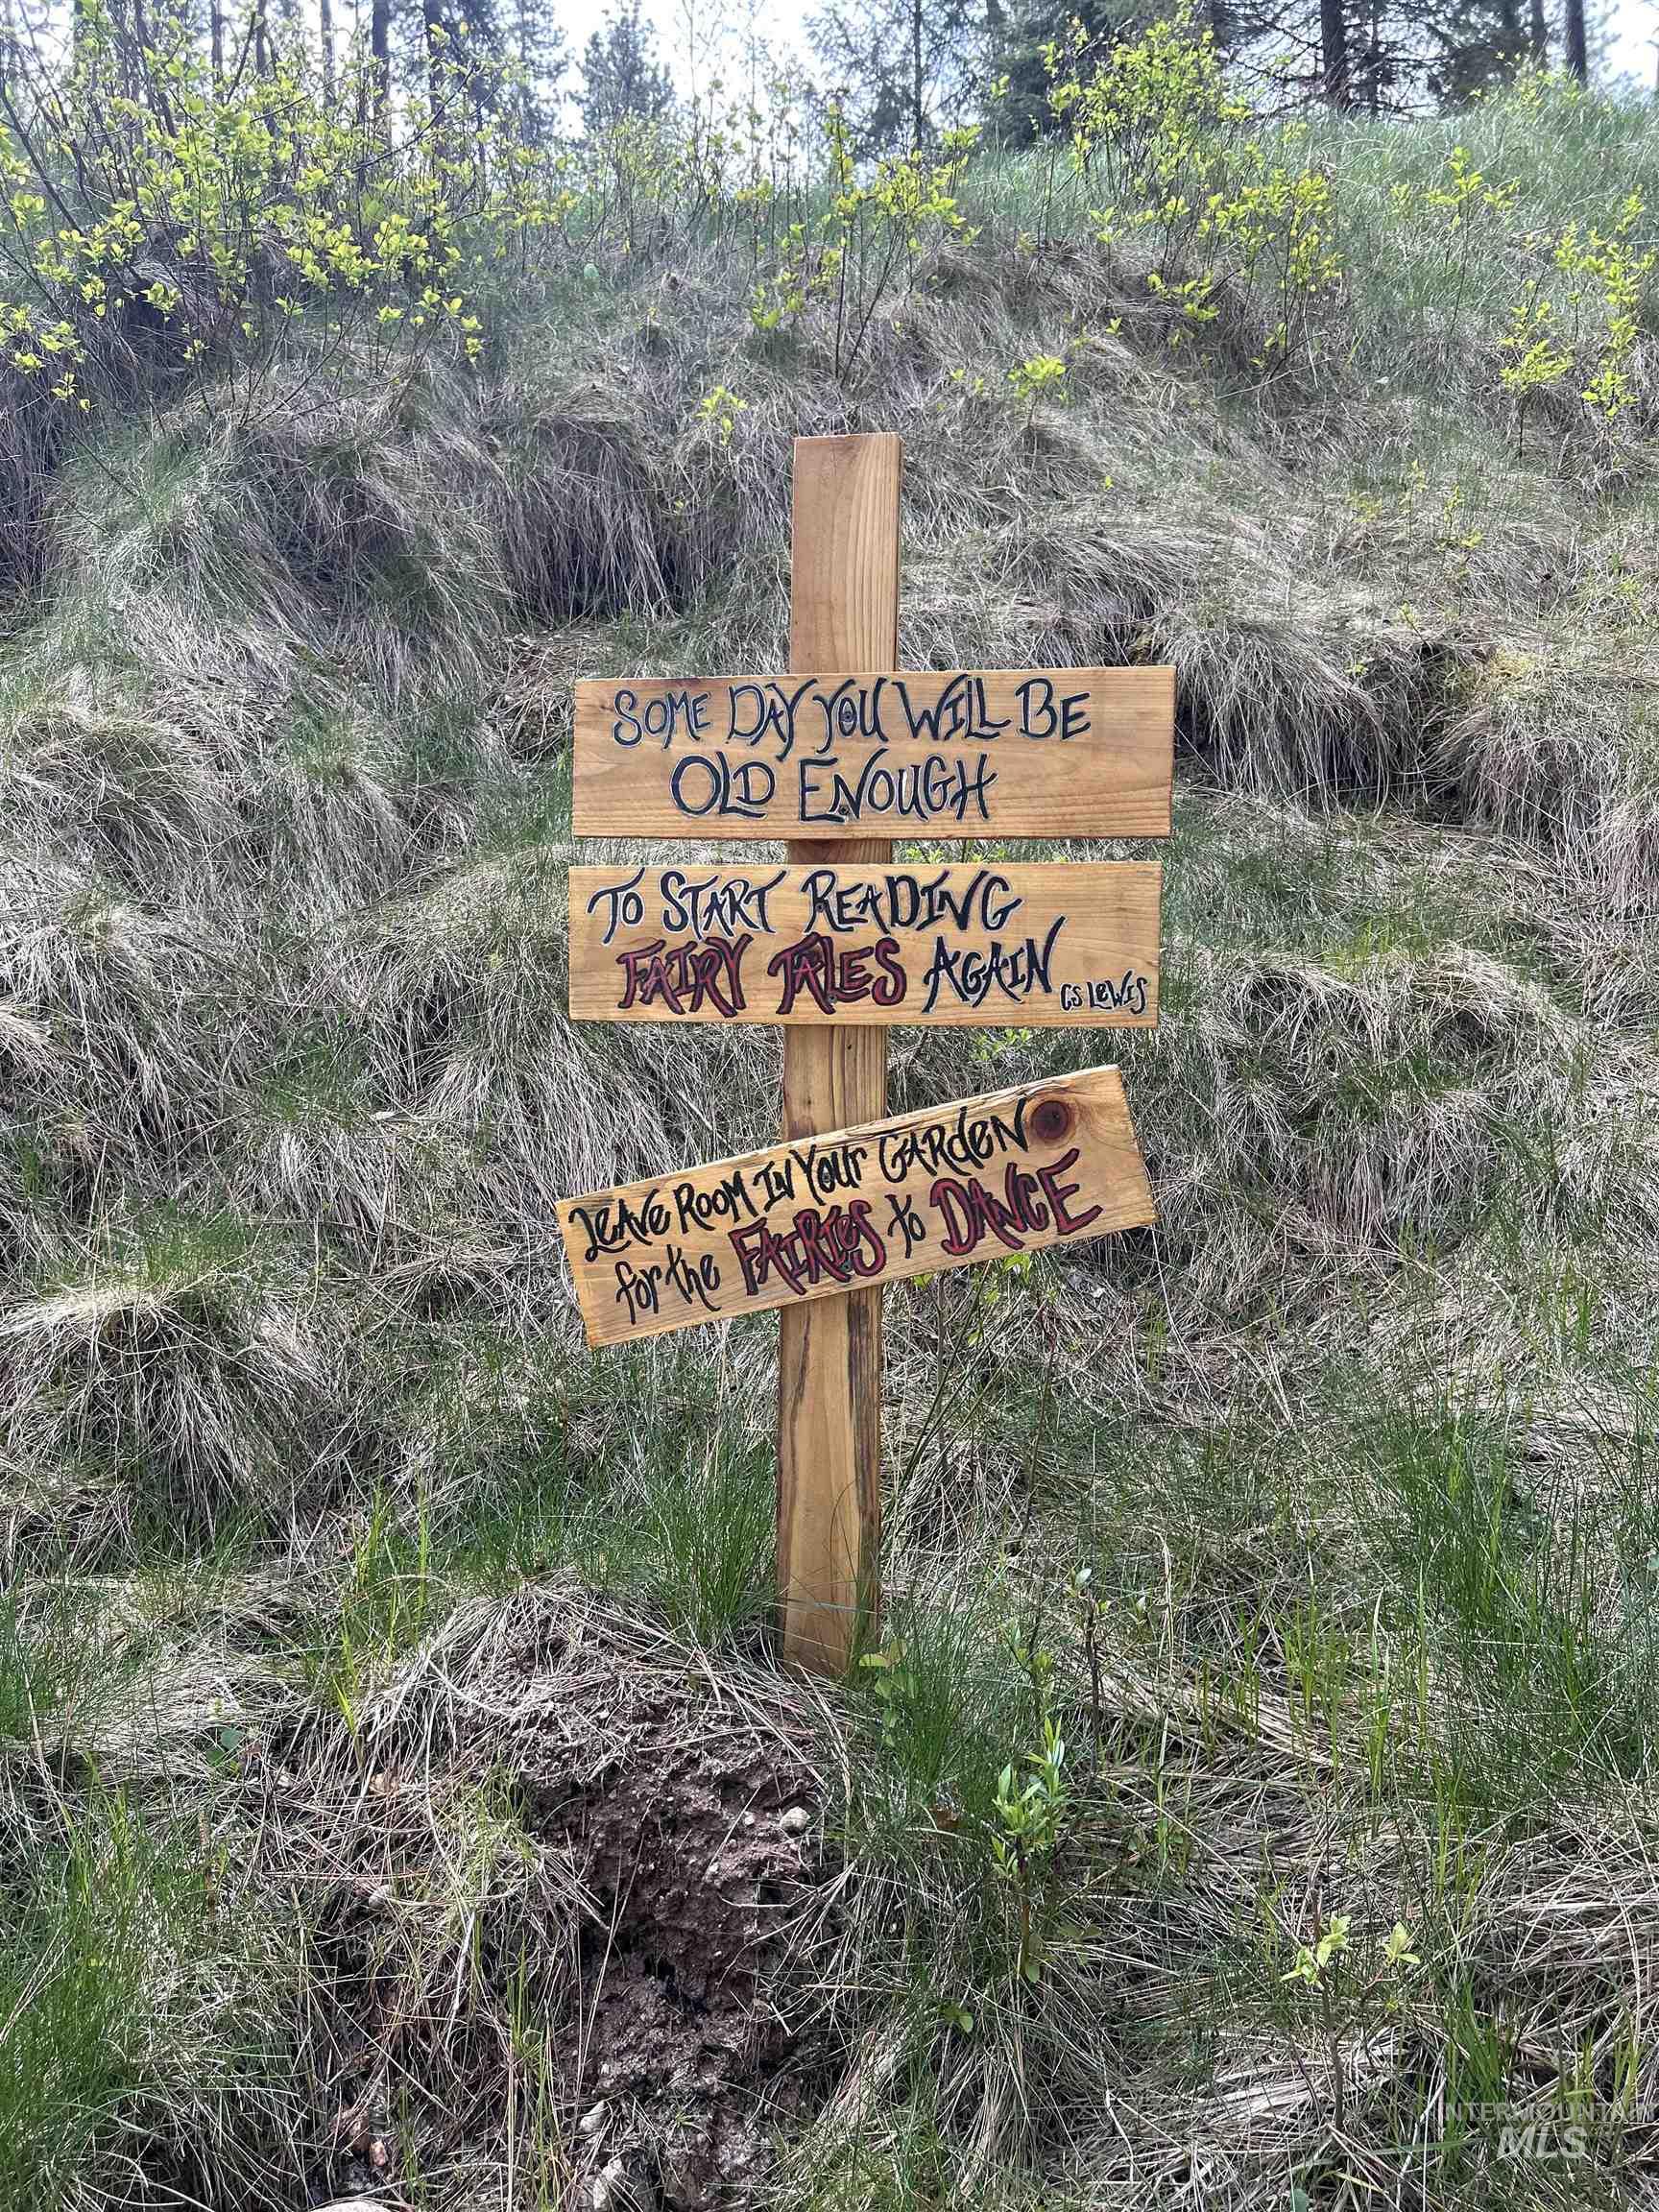 SOME DAY YOU WILL BE
OLD ENOUGH
TO START READING
FAIRY TALES AGAIN
CS LEWIS
LEAVE ROOM IN YOUR GARDEN
for the FAIRIES to DANCE
INTERMOUNTAIN
MLS